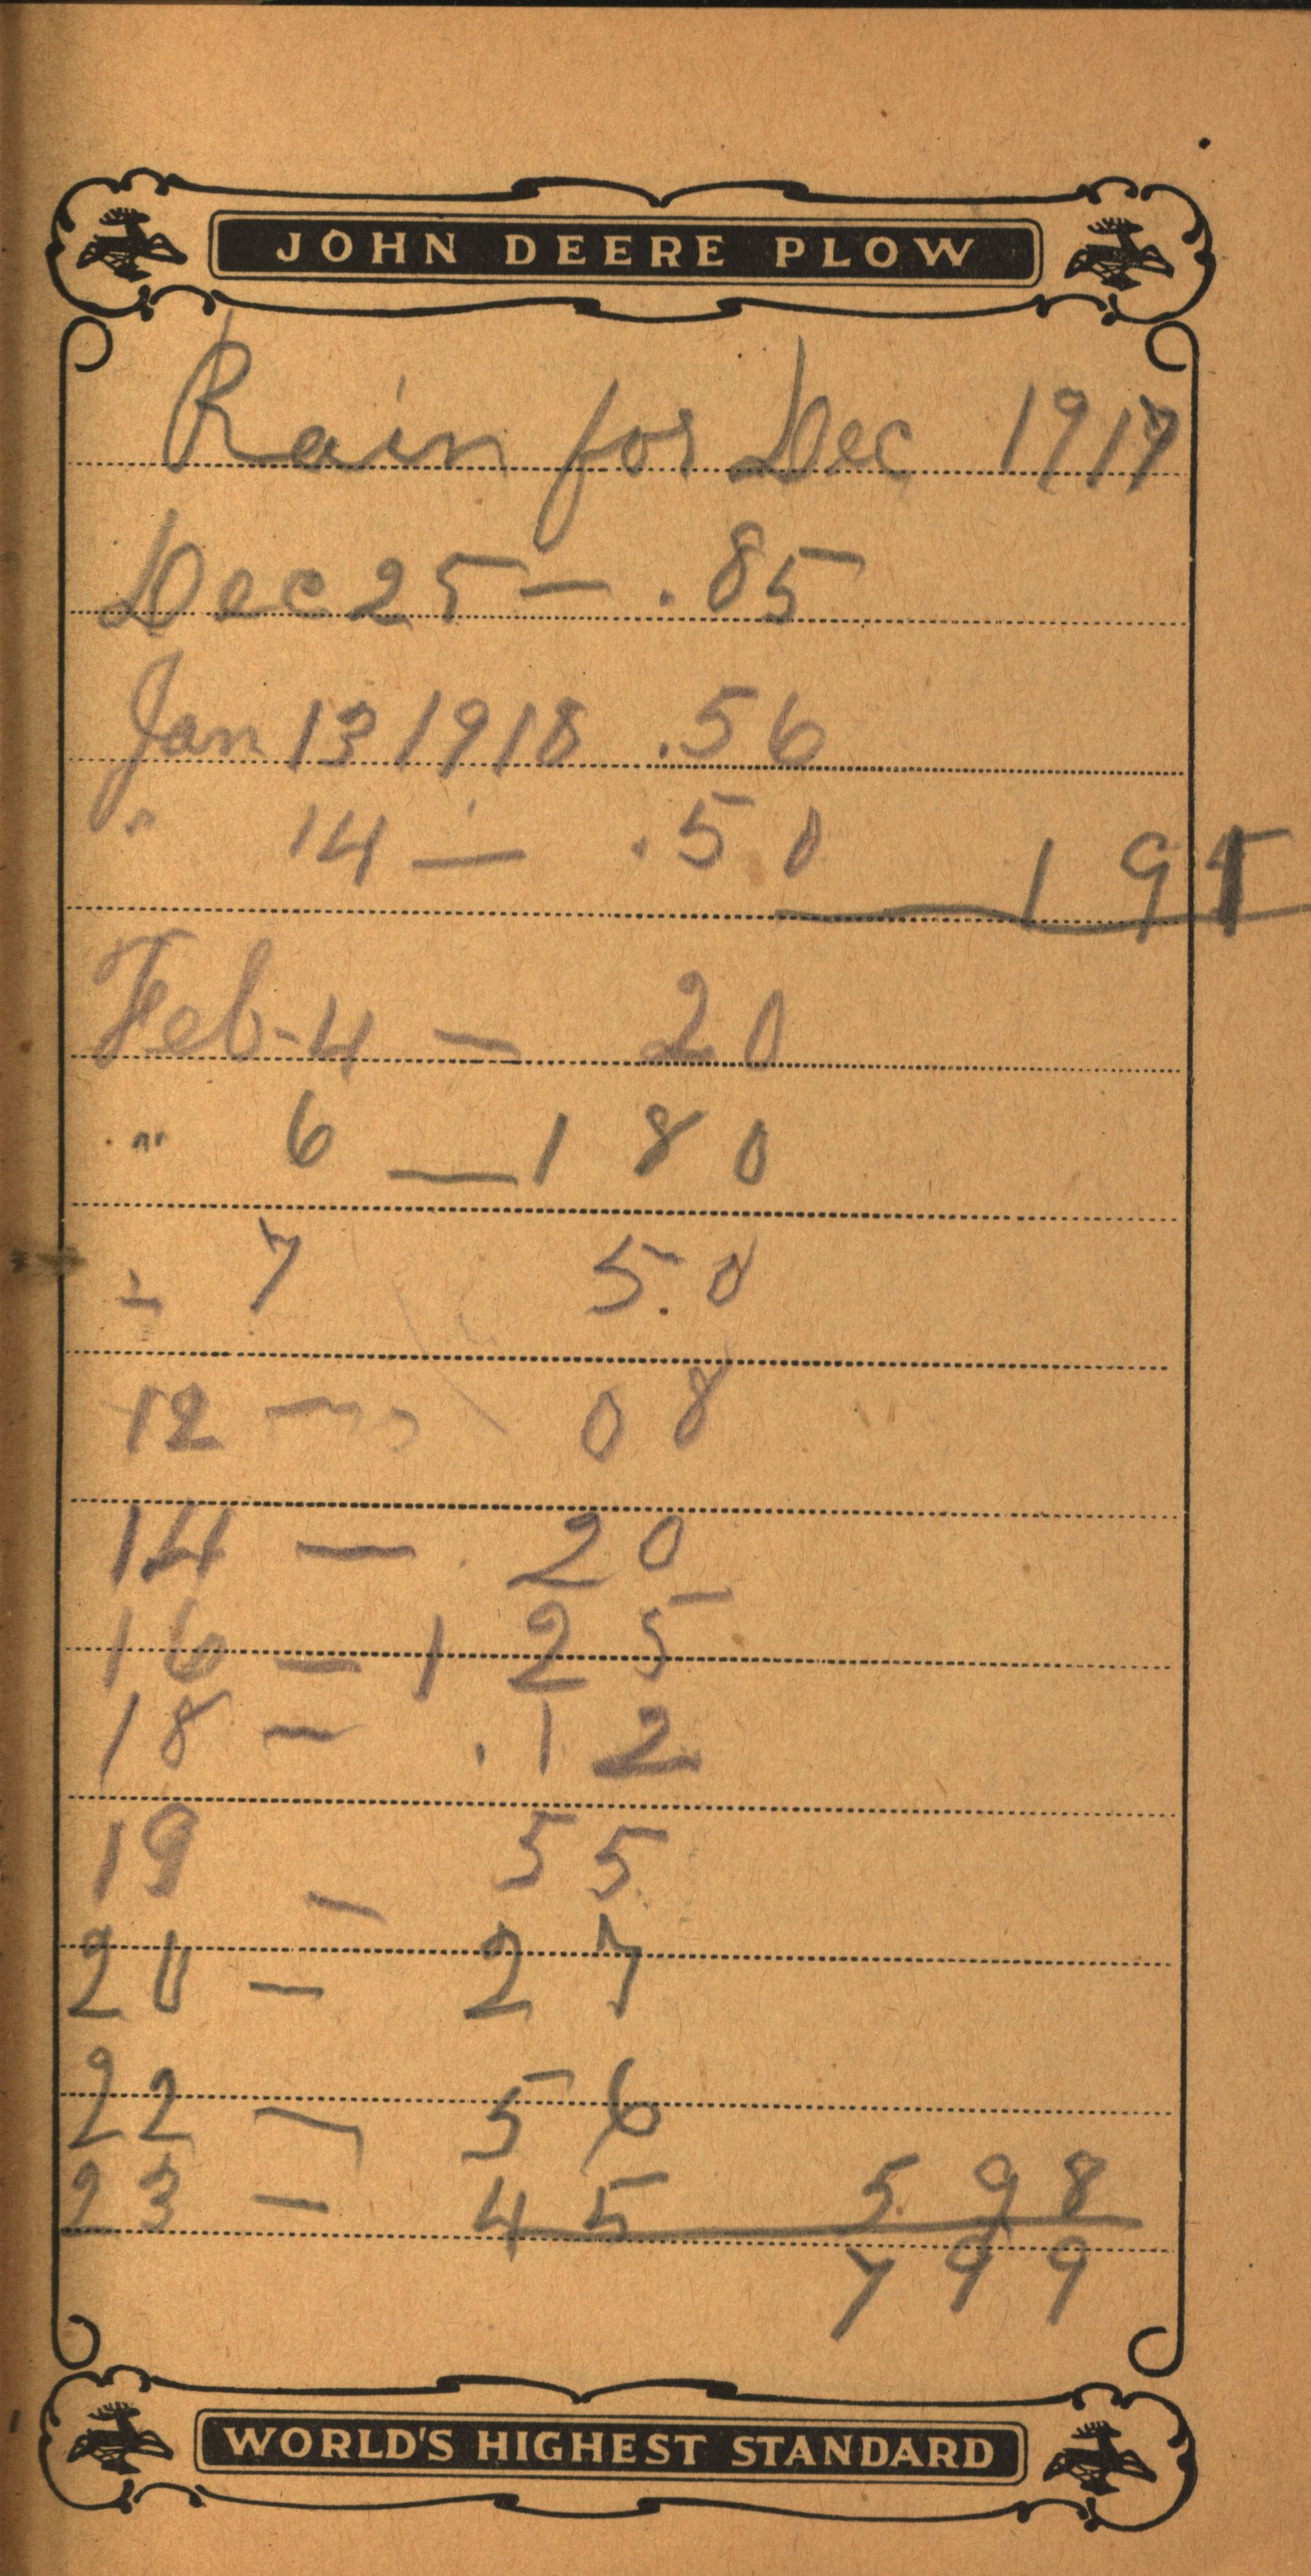 JOHN DEERE PLOW
Rain for Dec 1917
Dec 25 — .85
Jan 13 1918 .56
" 14 — .50 1 95
Feb - 4 — 20
" 6 — 1 80
" 7 5.0
12 — 08
14 — 20
16 — 1 25
18 — .12
19 — 55
20 — 27
22 — 56
23 — 45 5 98
7 99
WORLD'S HIGHEST STANDARD